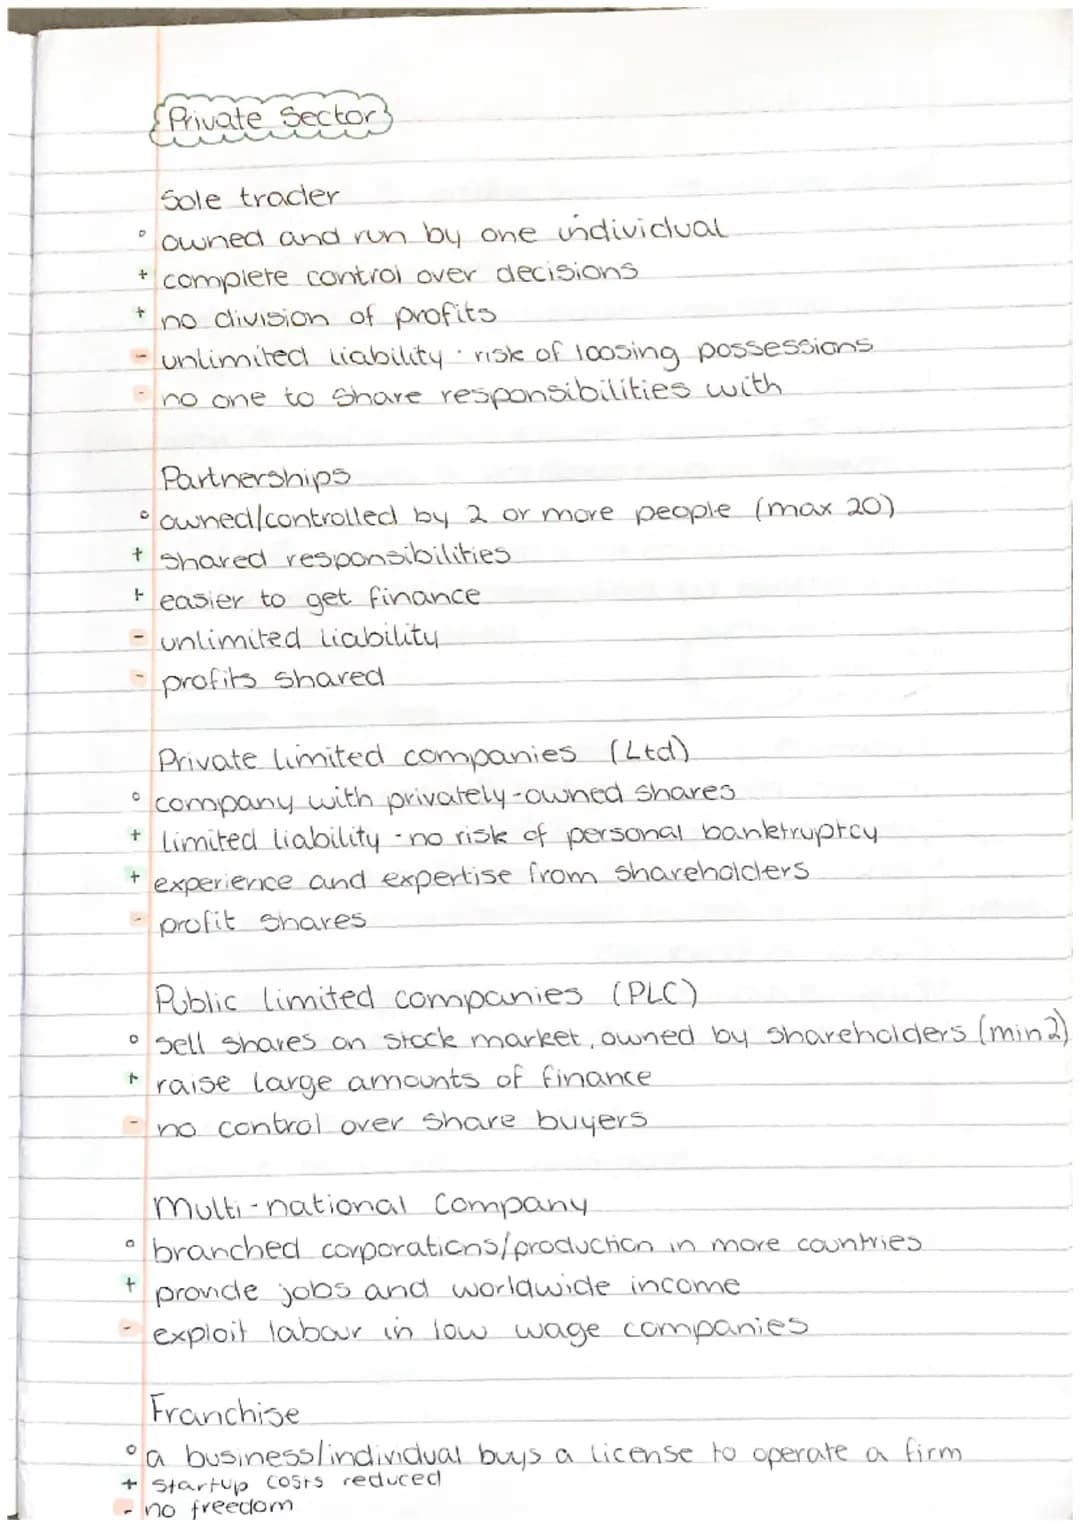 Private Sector
Sole trader
° owned and run by one individual
+ complete control over decisions
+ no division of profits
- unlimited liability · risk of loosing possessions
- no one to share responsibilities with
Partnerships
° owned/controlled by 2 or more people (max 20)
+ shared responsibilities
+ easier to get finance
- unlimited liability
- profits shared
Private limited companies (Ltd)
° company with privately-owned shares
+ limited liability - no risk of personal banktruptcy
+ experience and expertise from shareholders
- profit shares
Public limited companies (PLC)
° sell shares on stock market, owned by shareholders (min 2)
+ raise large amounts of finance
- no control over share buyers
Multi-national Company
° branched corporations/production in more countries
+ provide jobs and worldwide income
- exploit labour in low wage companies
Franchise
° a business/individual buys a license to operate a firm
+ startup costs reduced
- no freedom